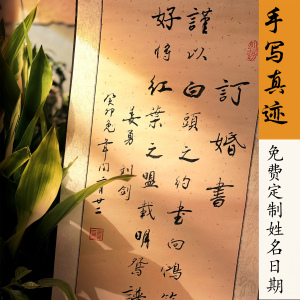 手写真迹
免费定制姓名日期
訂婚書
謹以白頭之约書向鴻
好将紅葉之盟載明鴛譜
姜勇
癸卯兔年闰二月廿二